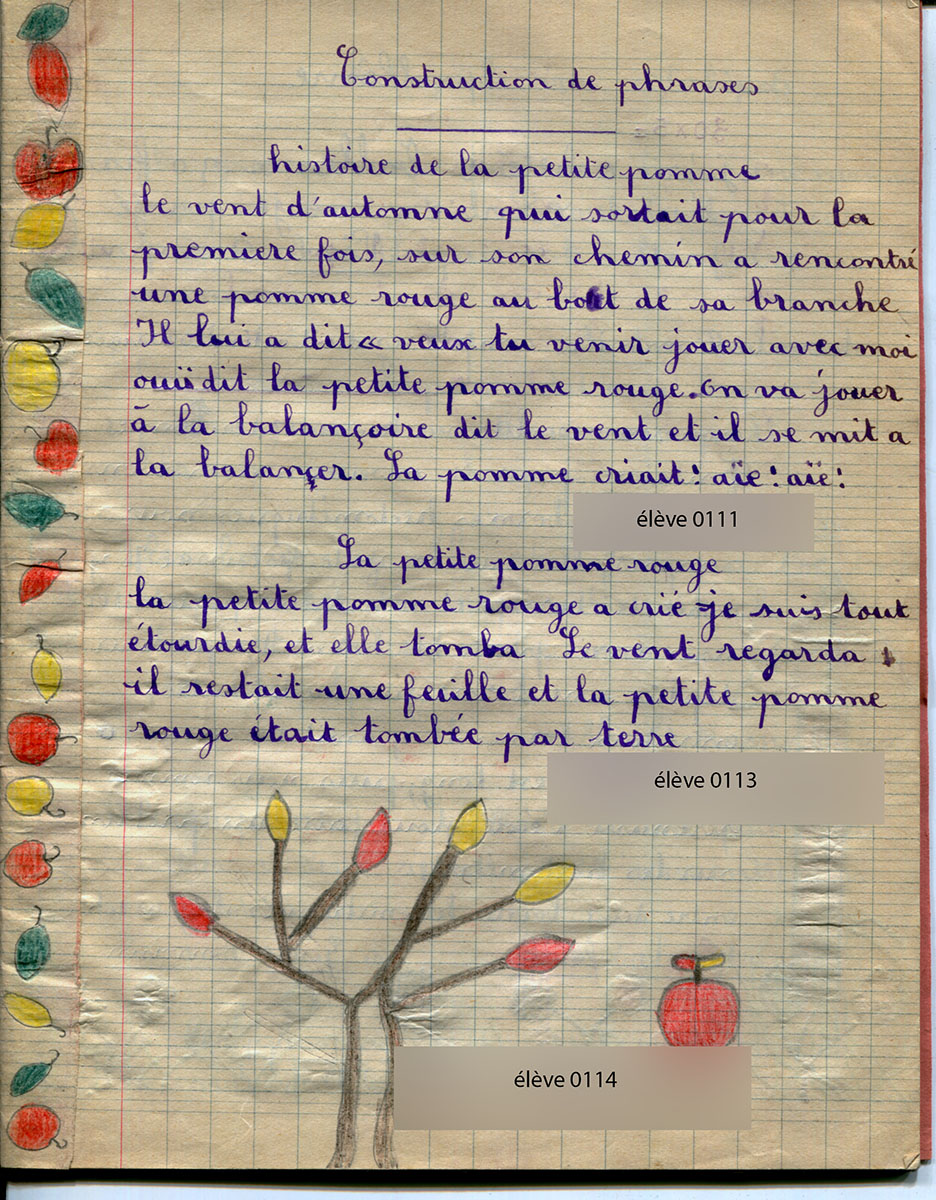 Construction de phrases
histoire de la petite pomme
le vent d'automne qui sortait pour la
premiere fois, sur son chemin a rencontré
une pomme rouge au bout de sa branche
Il lui a dit « veux tu venir jouer avec moi
ouï dit la petite pomme rouge. On va jouer
à la balançoire dit le vent et il se mit a
la balançer. La pomme criait! aïe! aïe!
élève 0111
La petite pomme rouge
la petite pomme rouge a crié je suis tout
étourdie, et elle tomba Le vent regarda
il restait une feuille et la petite pomme
rouge était tombée par terre
élève 0113
élève 0114